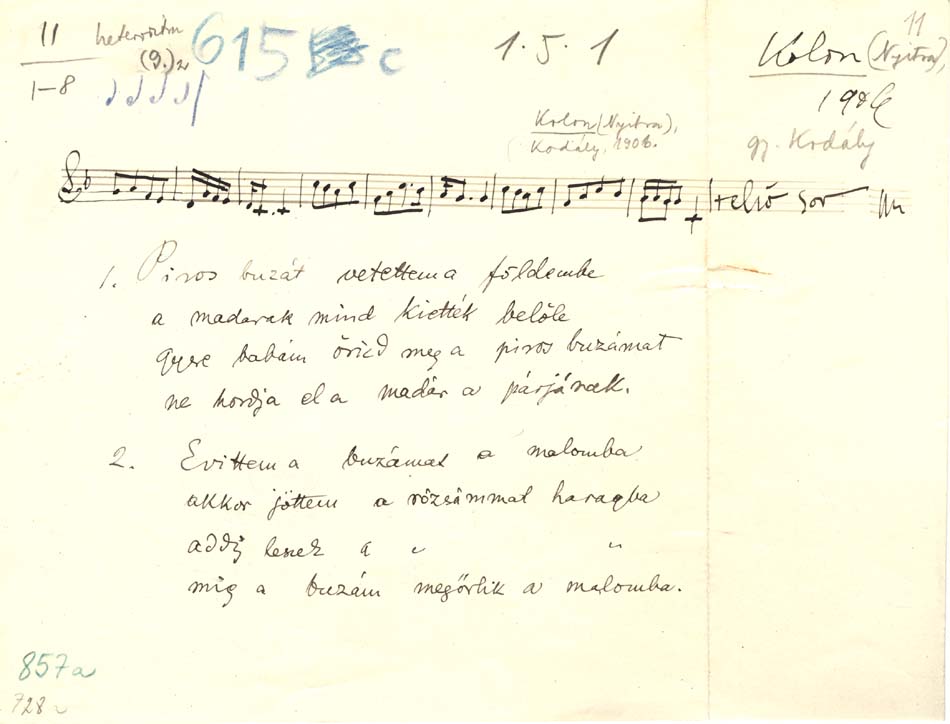 11
1-8
heteroritm
(9.)
615 c
1. 5. 1
11
Kolon (Nyitra),
1906
gy. Kodály
Kolon (Nyitra),
Kodály, 1906.
felső sor
1. Piros buzát vetettem a földembe
a madarak mind kiették belőle
gyere babám őrizd meg a piros buzámat
ne hordja el a madár a párjának.
2. Evittem a buzámat a malomba
akkor jöttem a rózsámmal haragba
addig leszek a " "
mig a buzám megőrlik a malomba.
857a
728